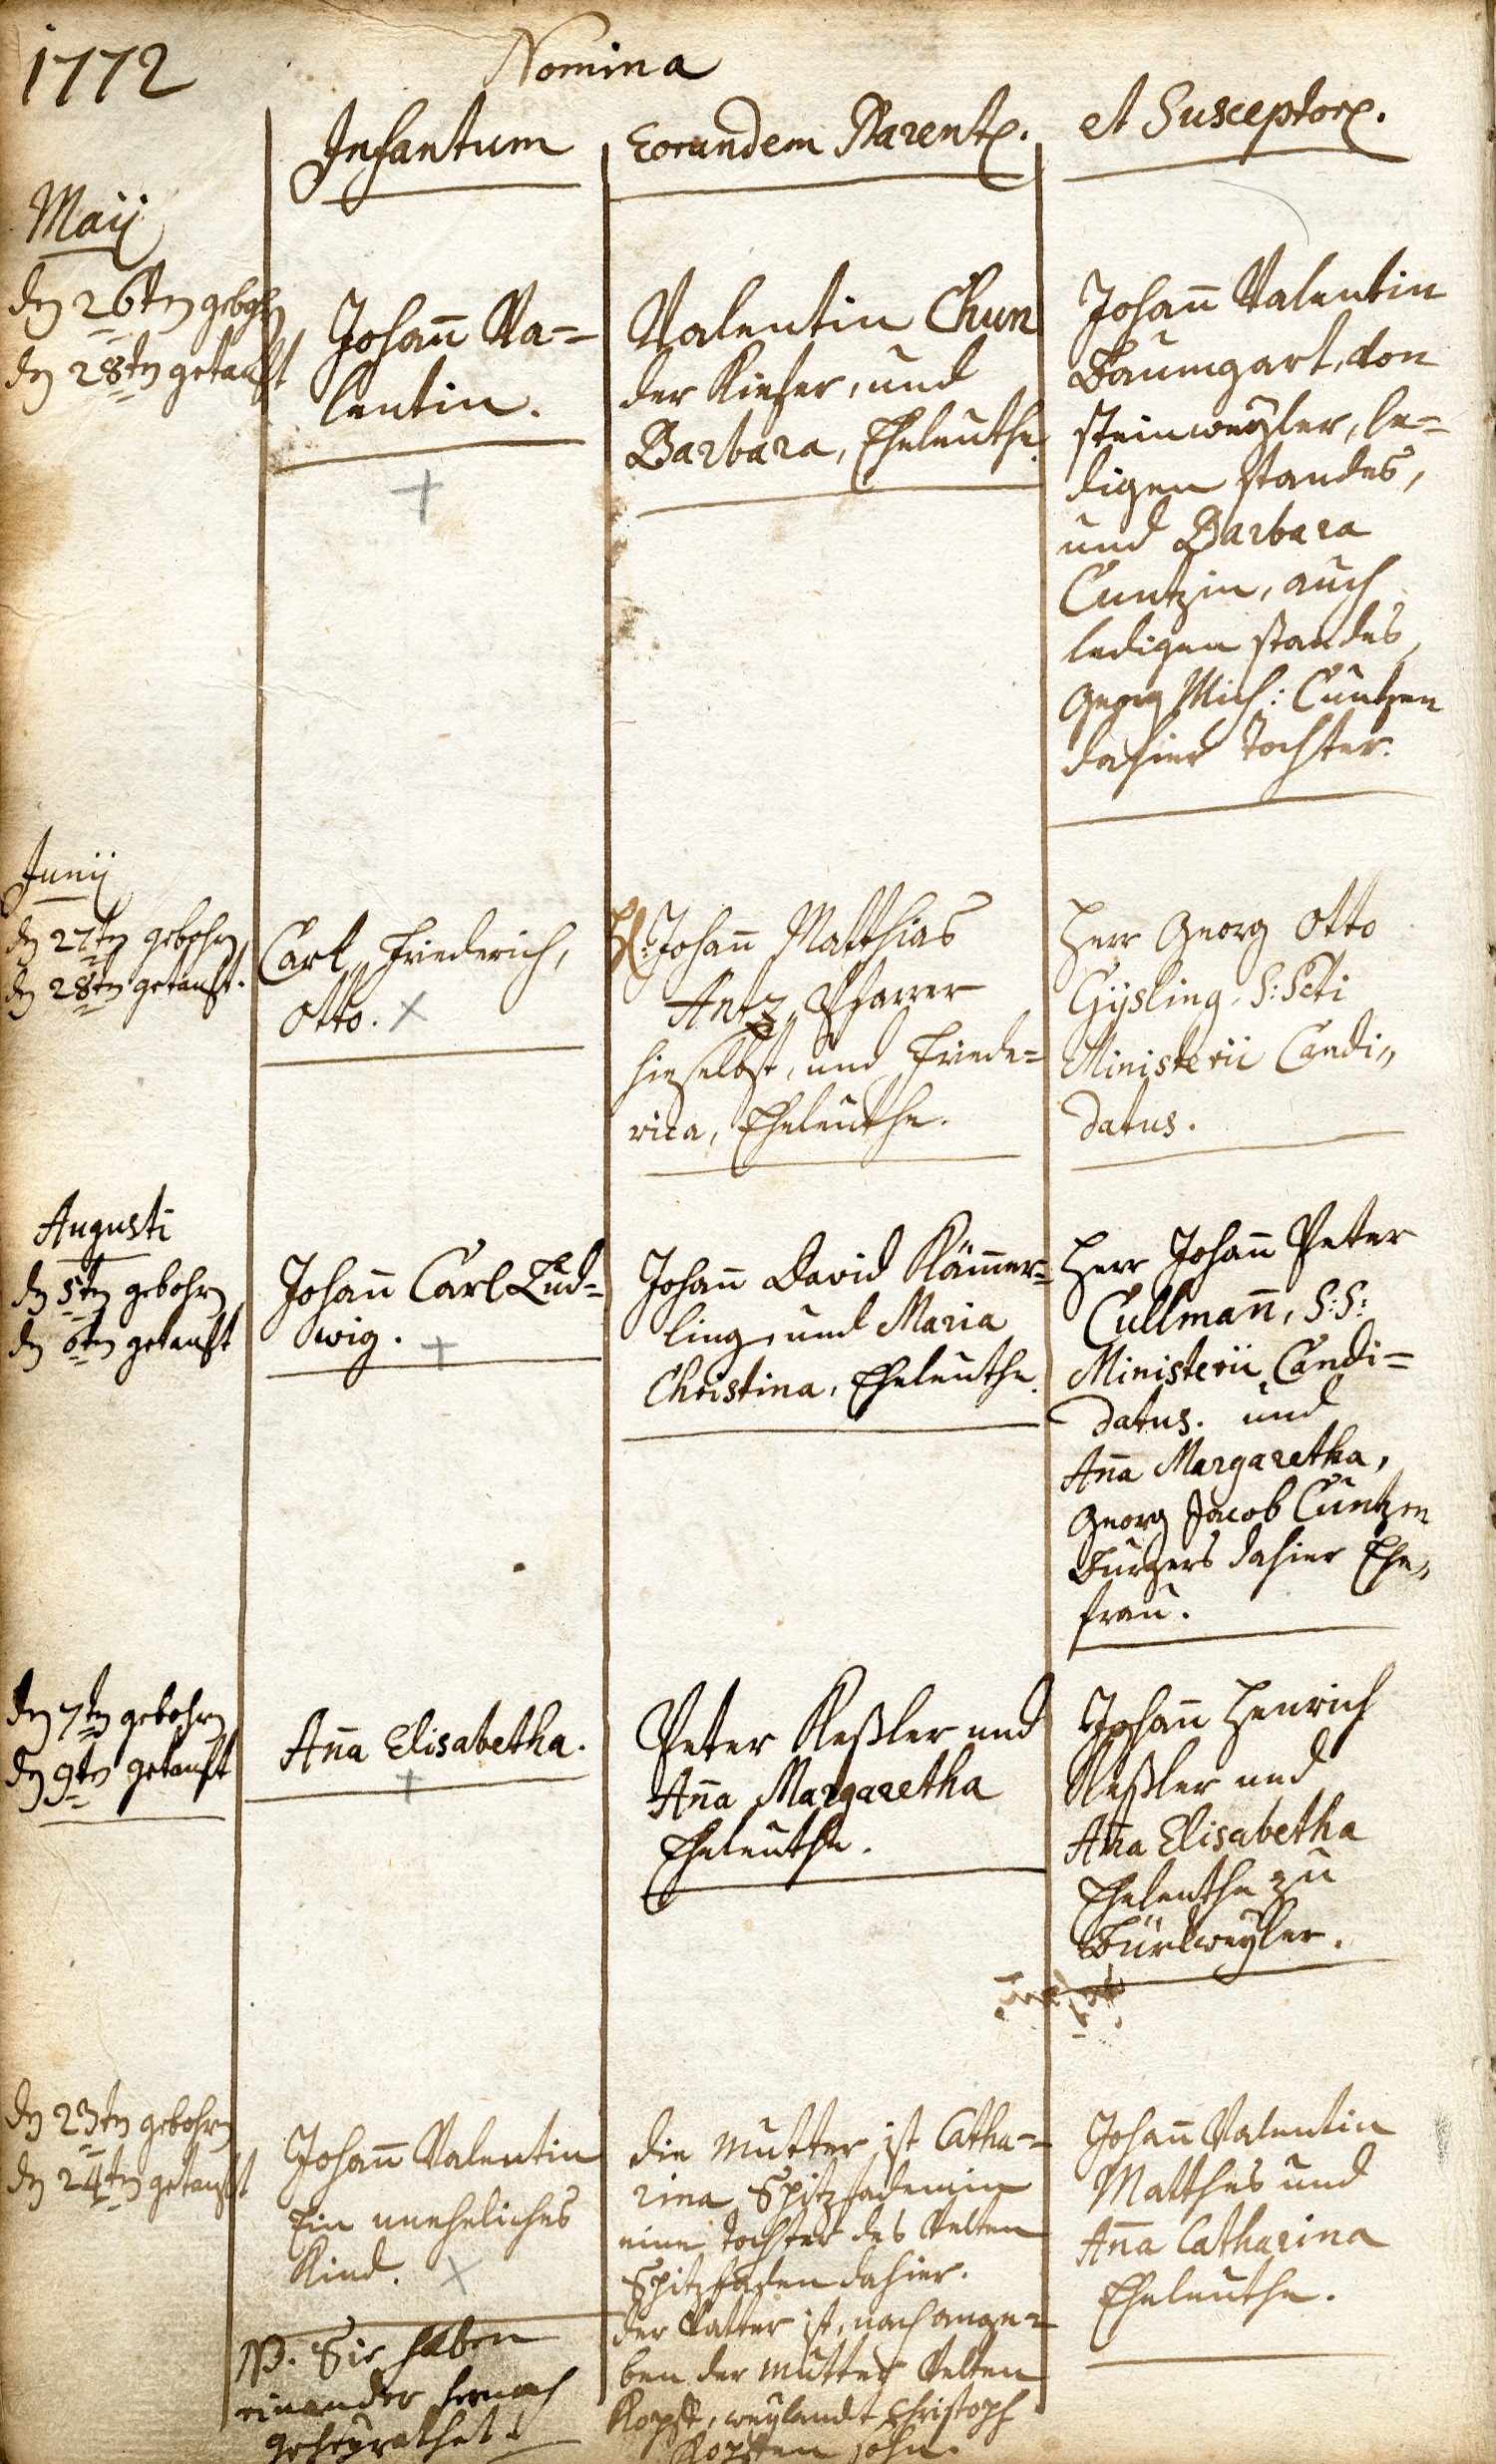 1772
Nomina
Infantum
Eorundem Parent.
et Susceptor.
Maij
den 26ten gebohrn
den 28ten getauft
Johañ Va=
lentin.
Valentin Chun
der Kiefer, und
Barbara, Eheleuthe.
Johañ Valentin
Baumgart, von
steinweyler, le=
digen standes,
und Barbara
Cuntzin, auch
ledigen standes,
Georg Mich: Cuntzen
dahier tochter.
Junij
den 27ten gebohrn
den 28ten getauft.
Carl, Friederich,
Otto.
H: Johañ Matthias
Antz, Pfarrer
hieselbst, und Friede=
rica, Eheleuthe.
Herr Georg Otto
Gysling, S: Scti
Ministerii Candi„
datus.
Augusti
den 5ten gebohrn
den 6ten getauft
Johañ Carl Lud=
wig.
Johañ David Käm̃er=
ling, und Maria
Christina, Eheleuthe.
Herr Johañ Peter
Cullmañ, S: S:
Ministerii Candi=
datus. und
Aña Margaretha,
Georg Jacob Cuntzen
Burgers dahier Ehe„
frau.
den 7ten gebohrn
den 9ten getauft
Aña Elisabetha.
Peter Keßler und
Aña Margaretha
Eheleuthe.
Johañ Henrich
Keßler und
Aña Elisabetha
Eheleuthe zu
Bürlweyler.
den 23ten gebohrn
den 24ten getauft
Johañ Valentin
Ein uneheliches
Kind.
NB. Sie haben
einander hernach
geheyrathet.
die Mutter ist Catha=
rina Spitzfademin
eine tochter des Velten
Spitzfaden dahier.
der Vatter ist, nach ange=
ben der Mutter Velten
Kopff, weylandt Christoph
Kopffen sohn.
Johañ Valentin
Matthes und
Aña Catharina
Eheleuthe.